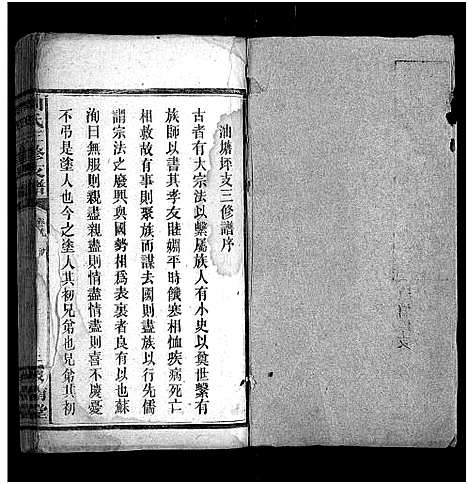 油塘坪支三修譜序
古者有大宗法以繫屬族人有小史以奠世繫有
族師以書其孝友睦婣平時饑寒相恤疾病死亡
相救故有事則聚族而謀去國則盡族以行先儒
謂宗法之廢興與國勢相為表裏者良有以也蘇
洵曰無服則親盡親盡則情盡情盡則喜不慶憂
不弔是塗人也今之塗人其初兄弟也兄弟其初
氏三修支譜
堂